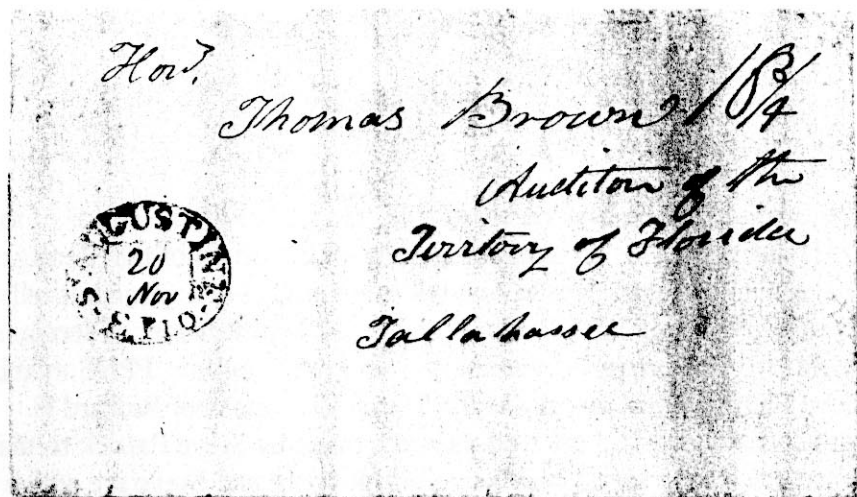 Hon.
Thomas Brown 18 3/4
Auditor of the
Territory of Florida
Tallahassee
ST AUGUSTINE
20
Nov
E. FLO.